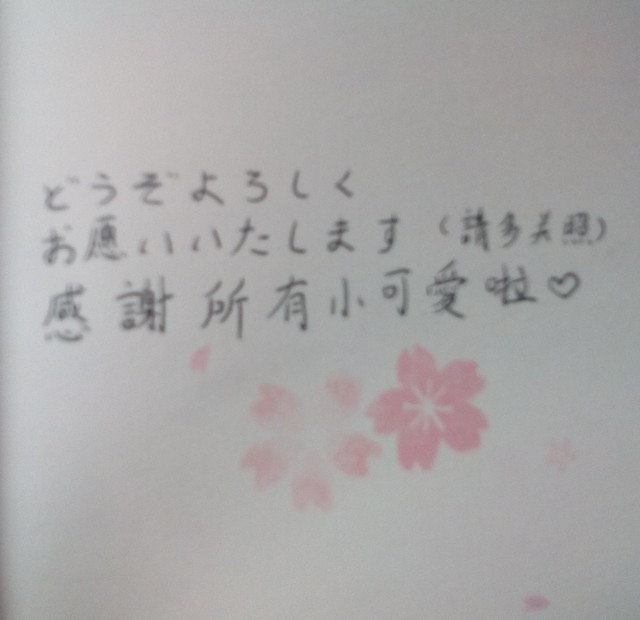 どうぞよろしく
お愿いいたします（請多关照）
感謝所有小可愛啦♡